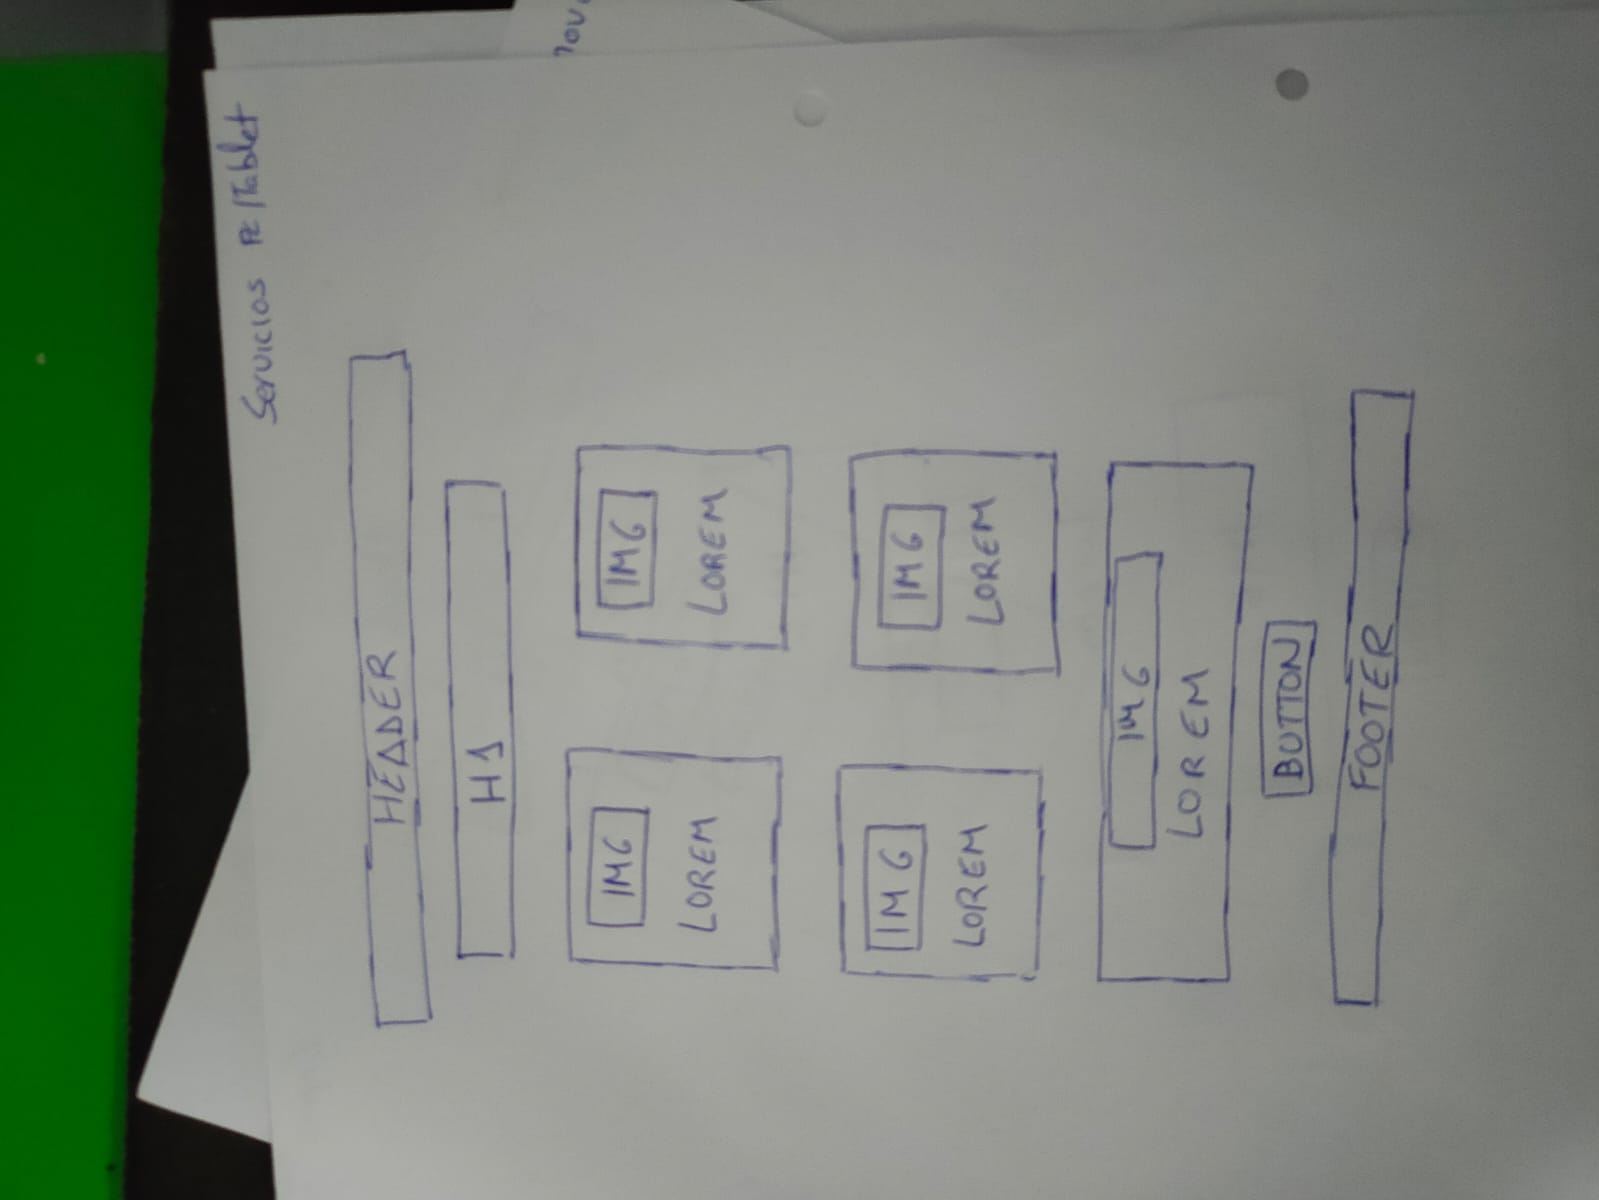 Servicios PC/Tablet
HEADER
H1
IMG IMG
LOREM LOREM
IMG IMG
LOREM LOREM
IMG
LOREM
BUTTON
FOOTER